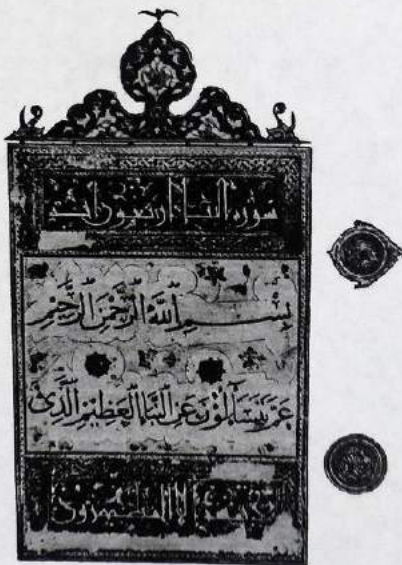 سورة النبا اربعون اية
بِسْمِ اللَّهِ الرَّحْمَنِ الرَّحِيمِ
عَمَّ يَتَسَآءَلُونَ عَنِ النَّبَإِ الْعَظِيمِ الَّذِي
الا المطهرون